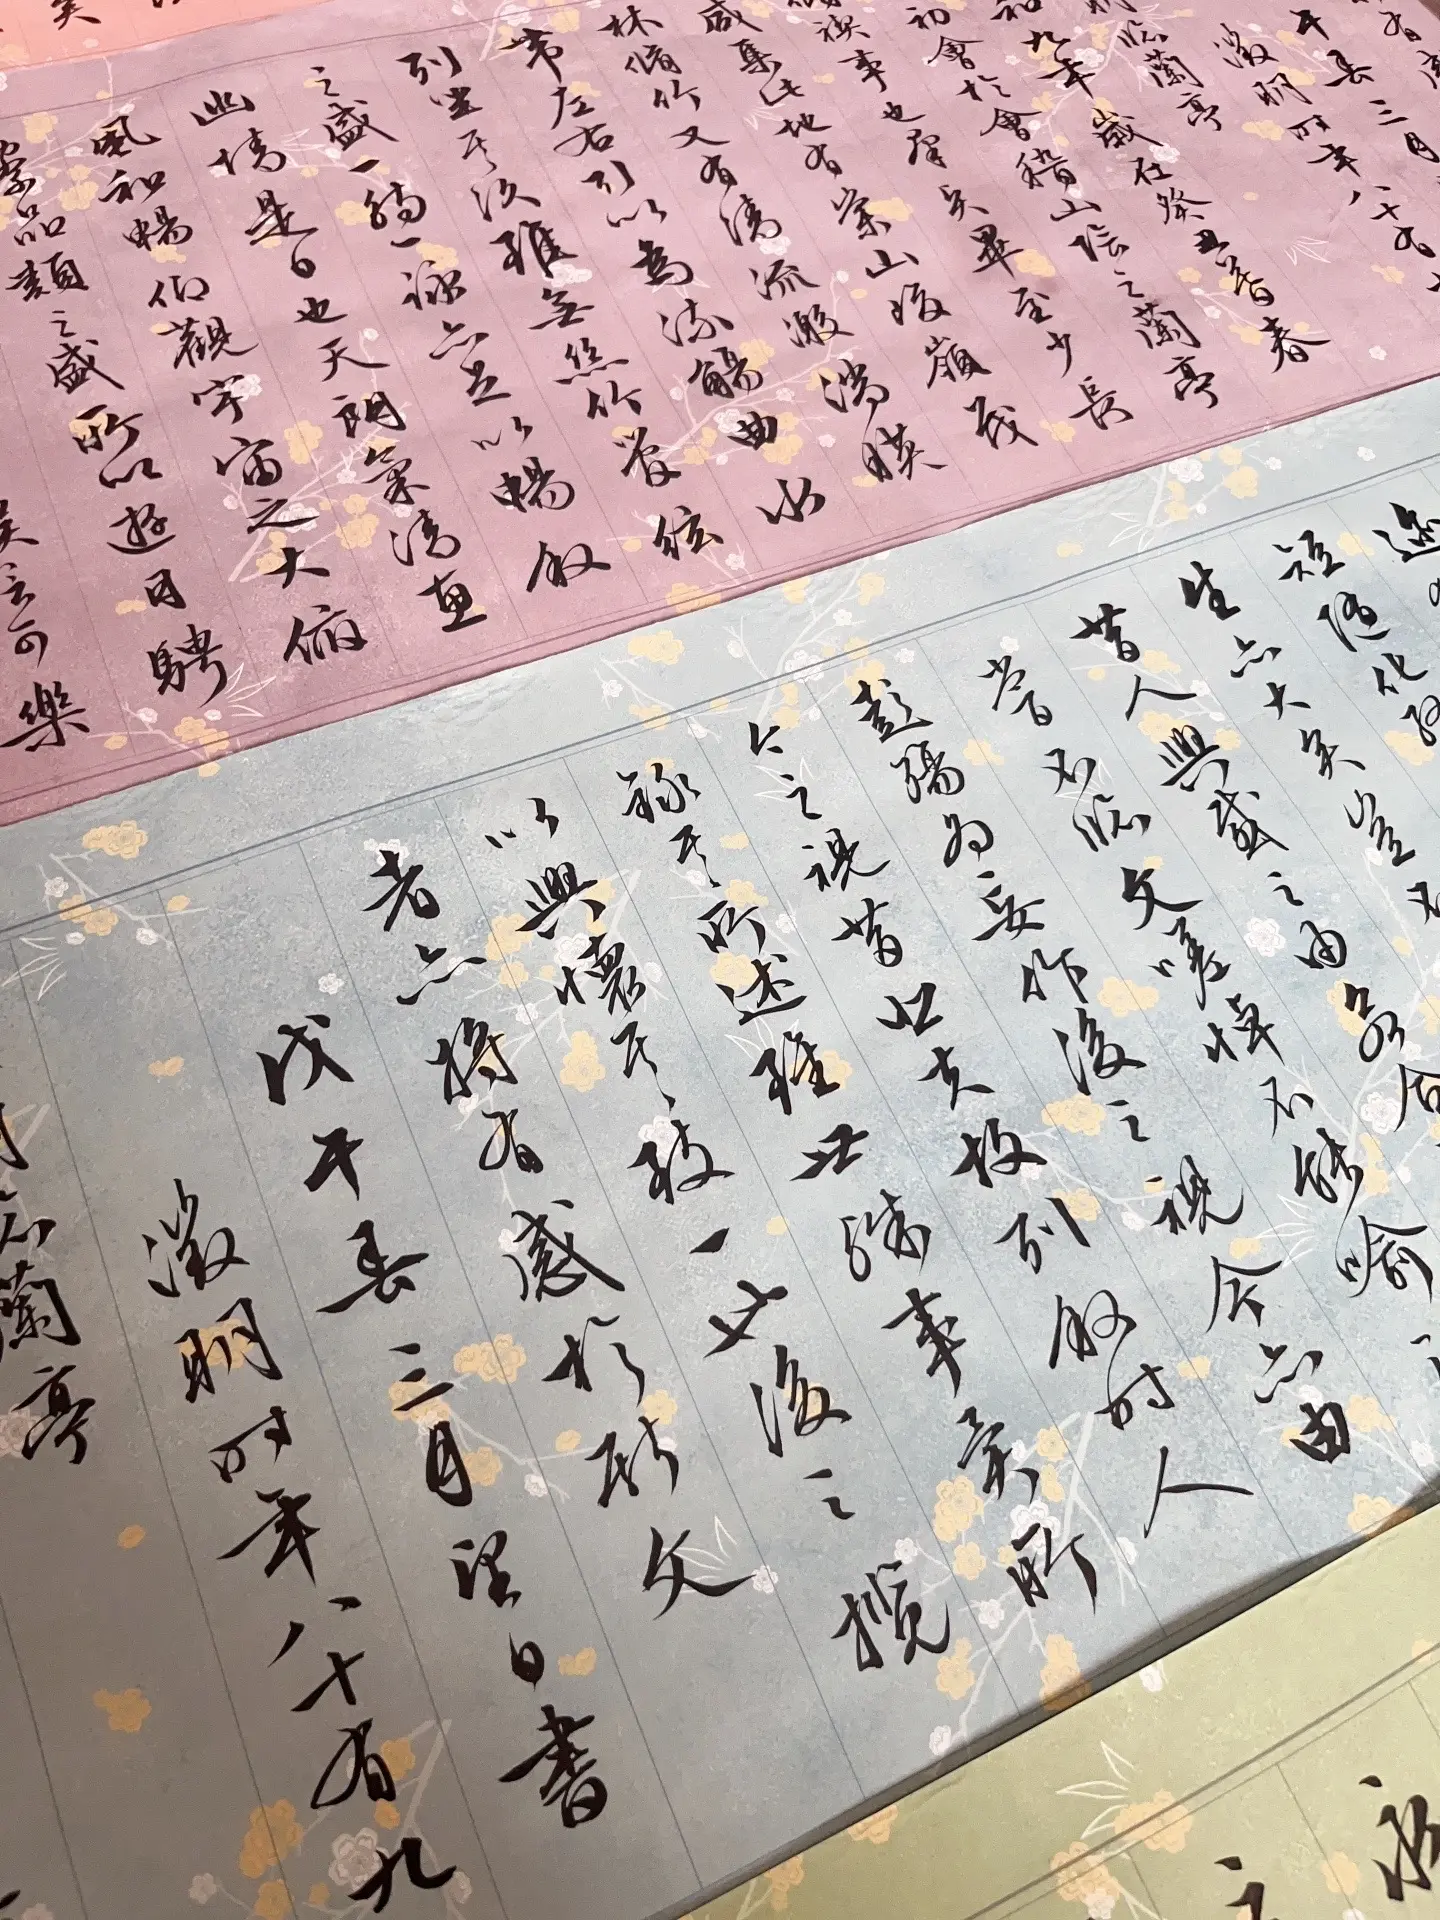 春三月
午春三月
徵明时年八十有
臨蘭亭
和九年歲在癸丑暮春
初會於會稽山陰之蘭亭
禊事也羣賢畢至少長
咸集此地有崇山峻嶺茂
林脩竹又有清流激湍暎
帶左右引以為流觴曲水
列坐其次雖無絲竹管絃
之盛一觴一詠亦足以暢叙
幽情是日也天朗氣清惠
風和暢仰觀宇宙之大俯
察品類之盛所以遊目騁
可樂
迹
短隨化
生亦大矣豈不
昔人興感之由若合
嘗不臨文嗟悼不能喻
彭殤為妄作後之視今亦由
今之視昔悲夫故列叙时人
錄其所述雖世殊事異所
以興懷其致一也後之攬
者亦將有感於斯文
戊午春三月望日書
徵明时年八十有九
蘭亭
永
之